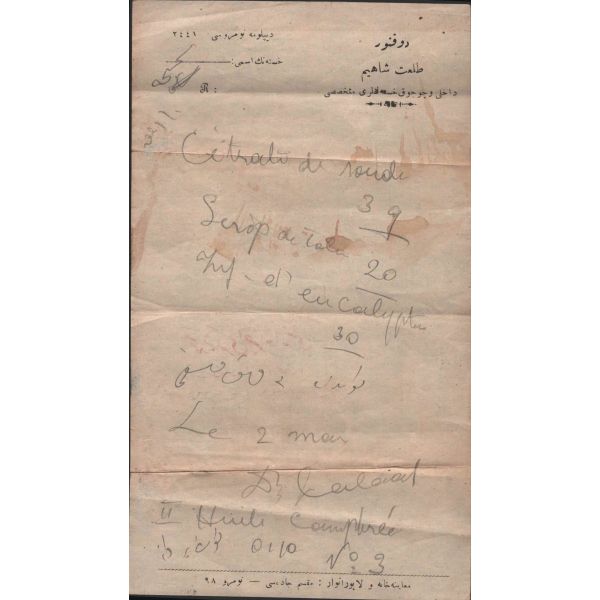 دوقتور
طلعت شاهیم
داخلی وچوجوق خسته‌لقلری متخصصی
دیپلومه نومروسی ٢٤٤١
خسته‌نك اسمی:
℞ :
Citrate de soude
3 g
Sirop de tolu
20
Inf - d'eucalyptus
30
Le 2 mars
Dr Talaat
II Huile Camphrée
0,10 No 3
معاینه‌خانه و لابوراتوار : مقسم جاده‌سی — نومرو ٩٨